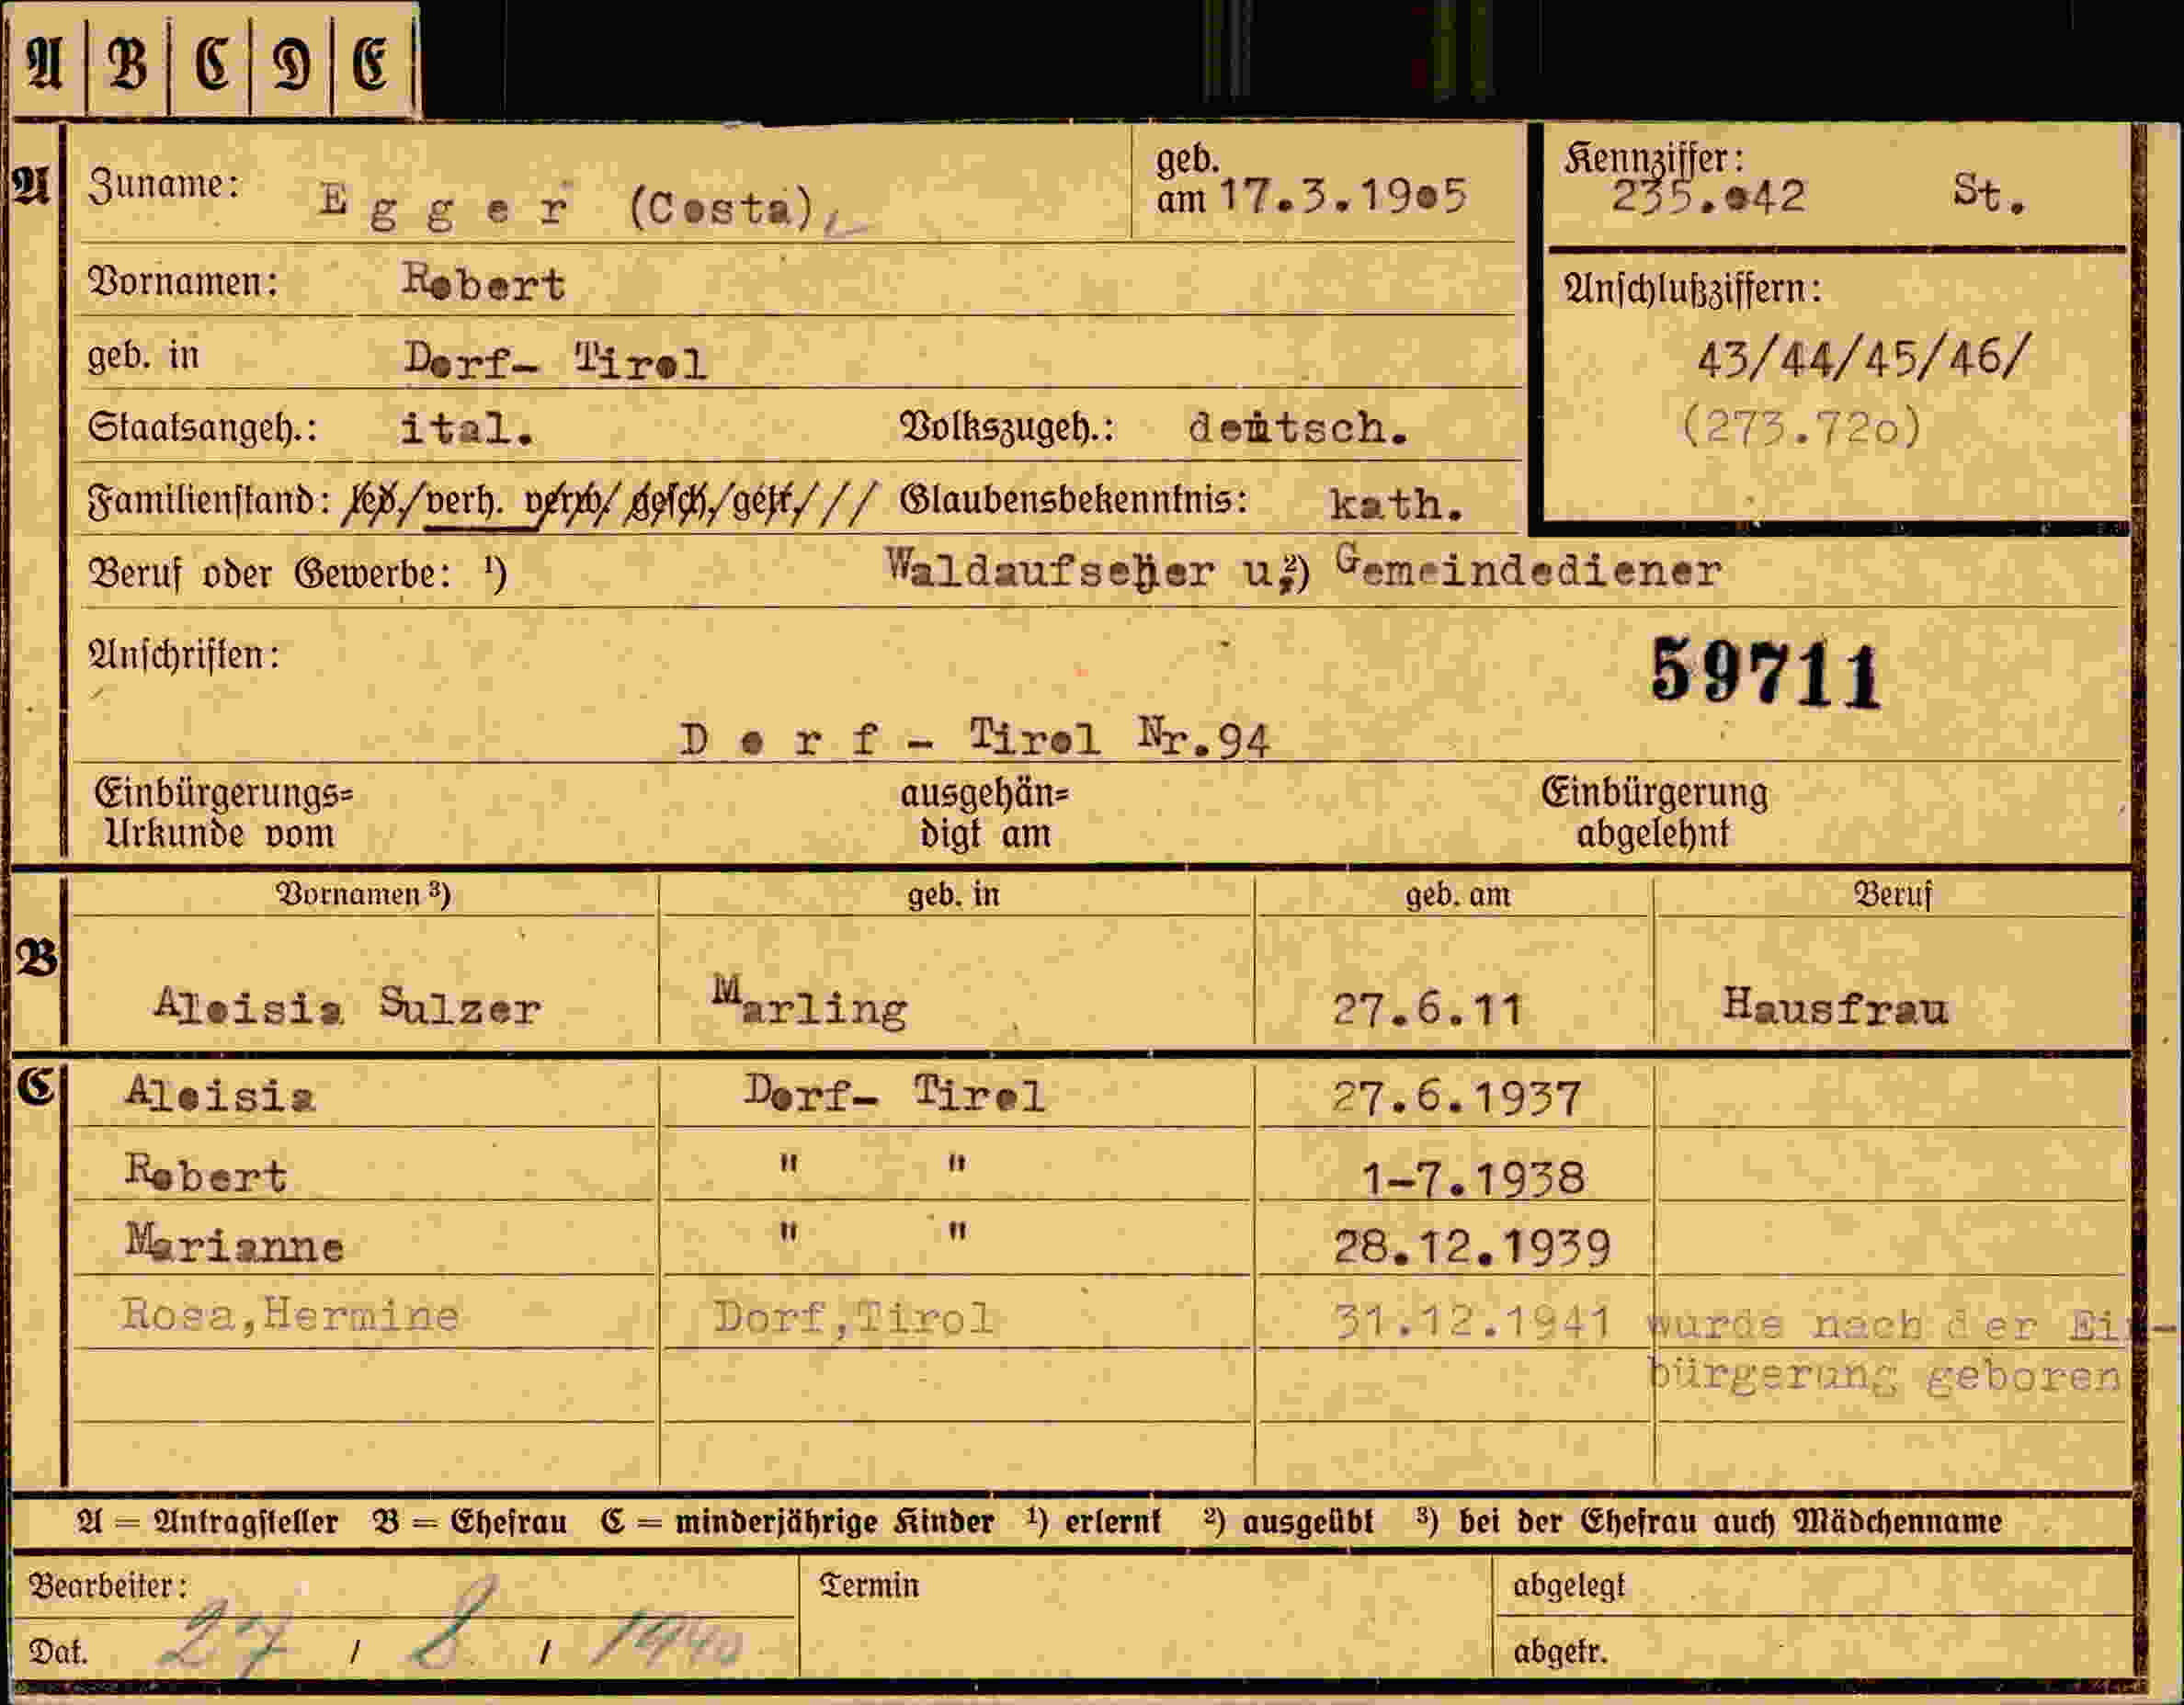 A B C D E
A Zuname: Egger (Costa), geb. am 17.3.1905 Kennziffer: 235.042 St.
Vornamen: Robert
Anschlußziffern:
geb. in Dorf- Tirol 43/44/45/46/
Staatsangeh.: ital. Volkszugeh.: deutsch. (273.720)
Familienstand: led./verh. verw/ gesch./getr./// Glaubensbekenntnis: kath.
Beruf oder Gewerbe: ¹) Waldaufseher u. ²) Gemeindediener
Anschriften: 59711
Dorf - Tirol Nr.94
Einbürgerungs= ausgehän= Einbürgerung
Urkunde vom digt am abgelehnt
Vornamen ³) geb. in geb. am Beruf
B
Aloisia Sulzer Marling 27.6.11 Hausfrau
C Aloisia Dorf- Tirol 27.6.1937
Robert " " 1-7.1938
Marianne " " 28.12.1939
Rosa,Hermine Dorf,Tirol 31.12.1941 wurde nach der Ein-
bürgerung geboren
A = Antragsteller B = Ehefrau C = minderjährige Kinder ¹) erlernt ²) ausgeübt ³) bei der Ehefrau auch Mädchenname
Bearbeiter: Termin abgelegt
Dat. 27 / 8 / 1940 abgetr.